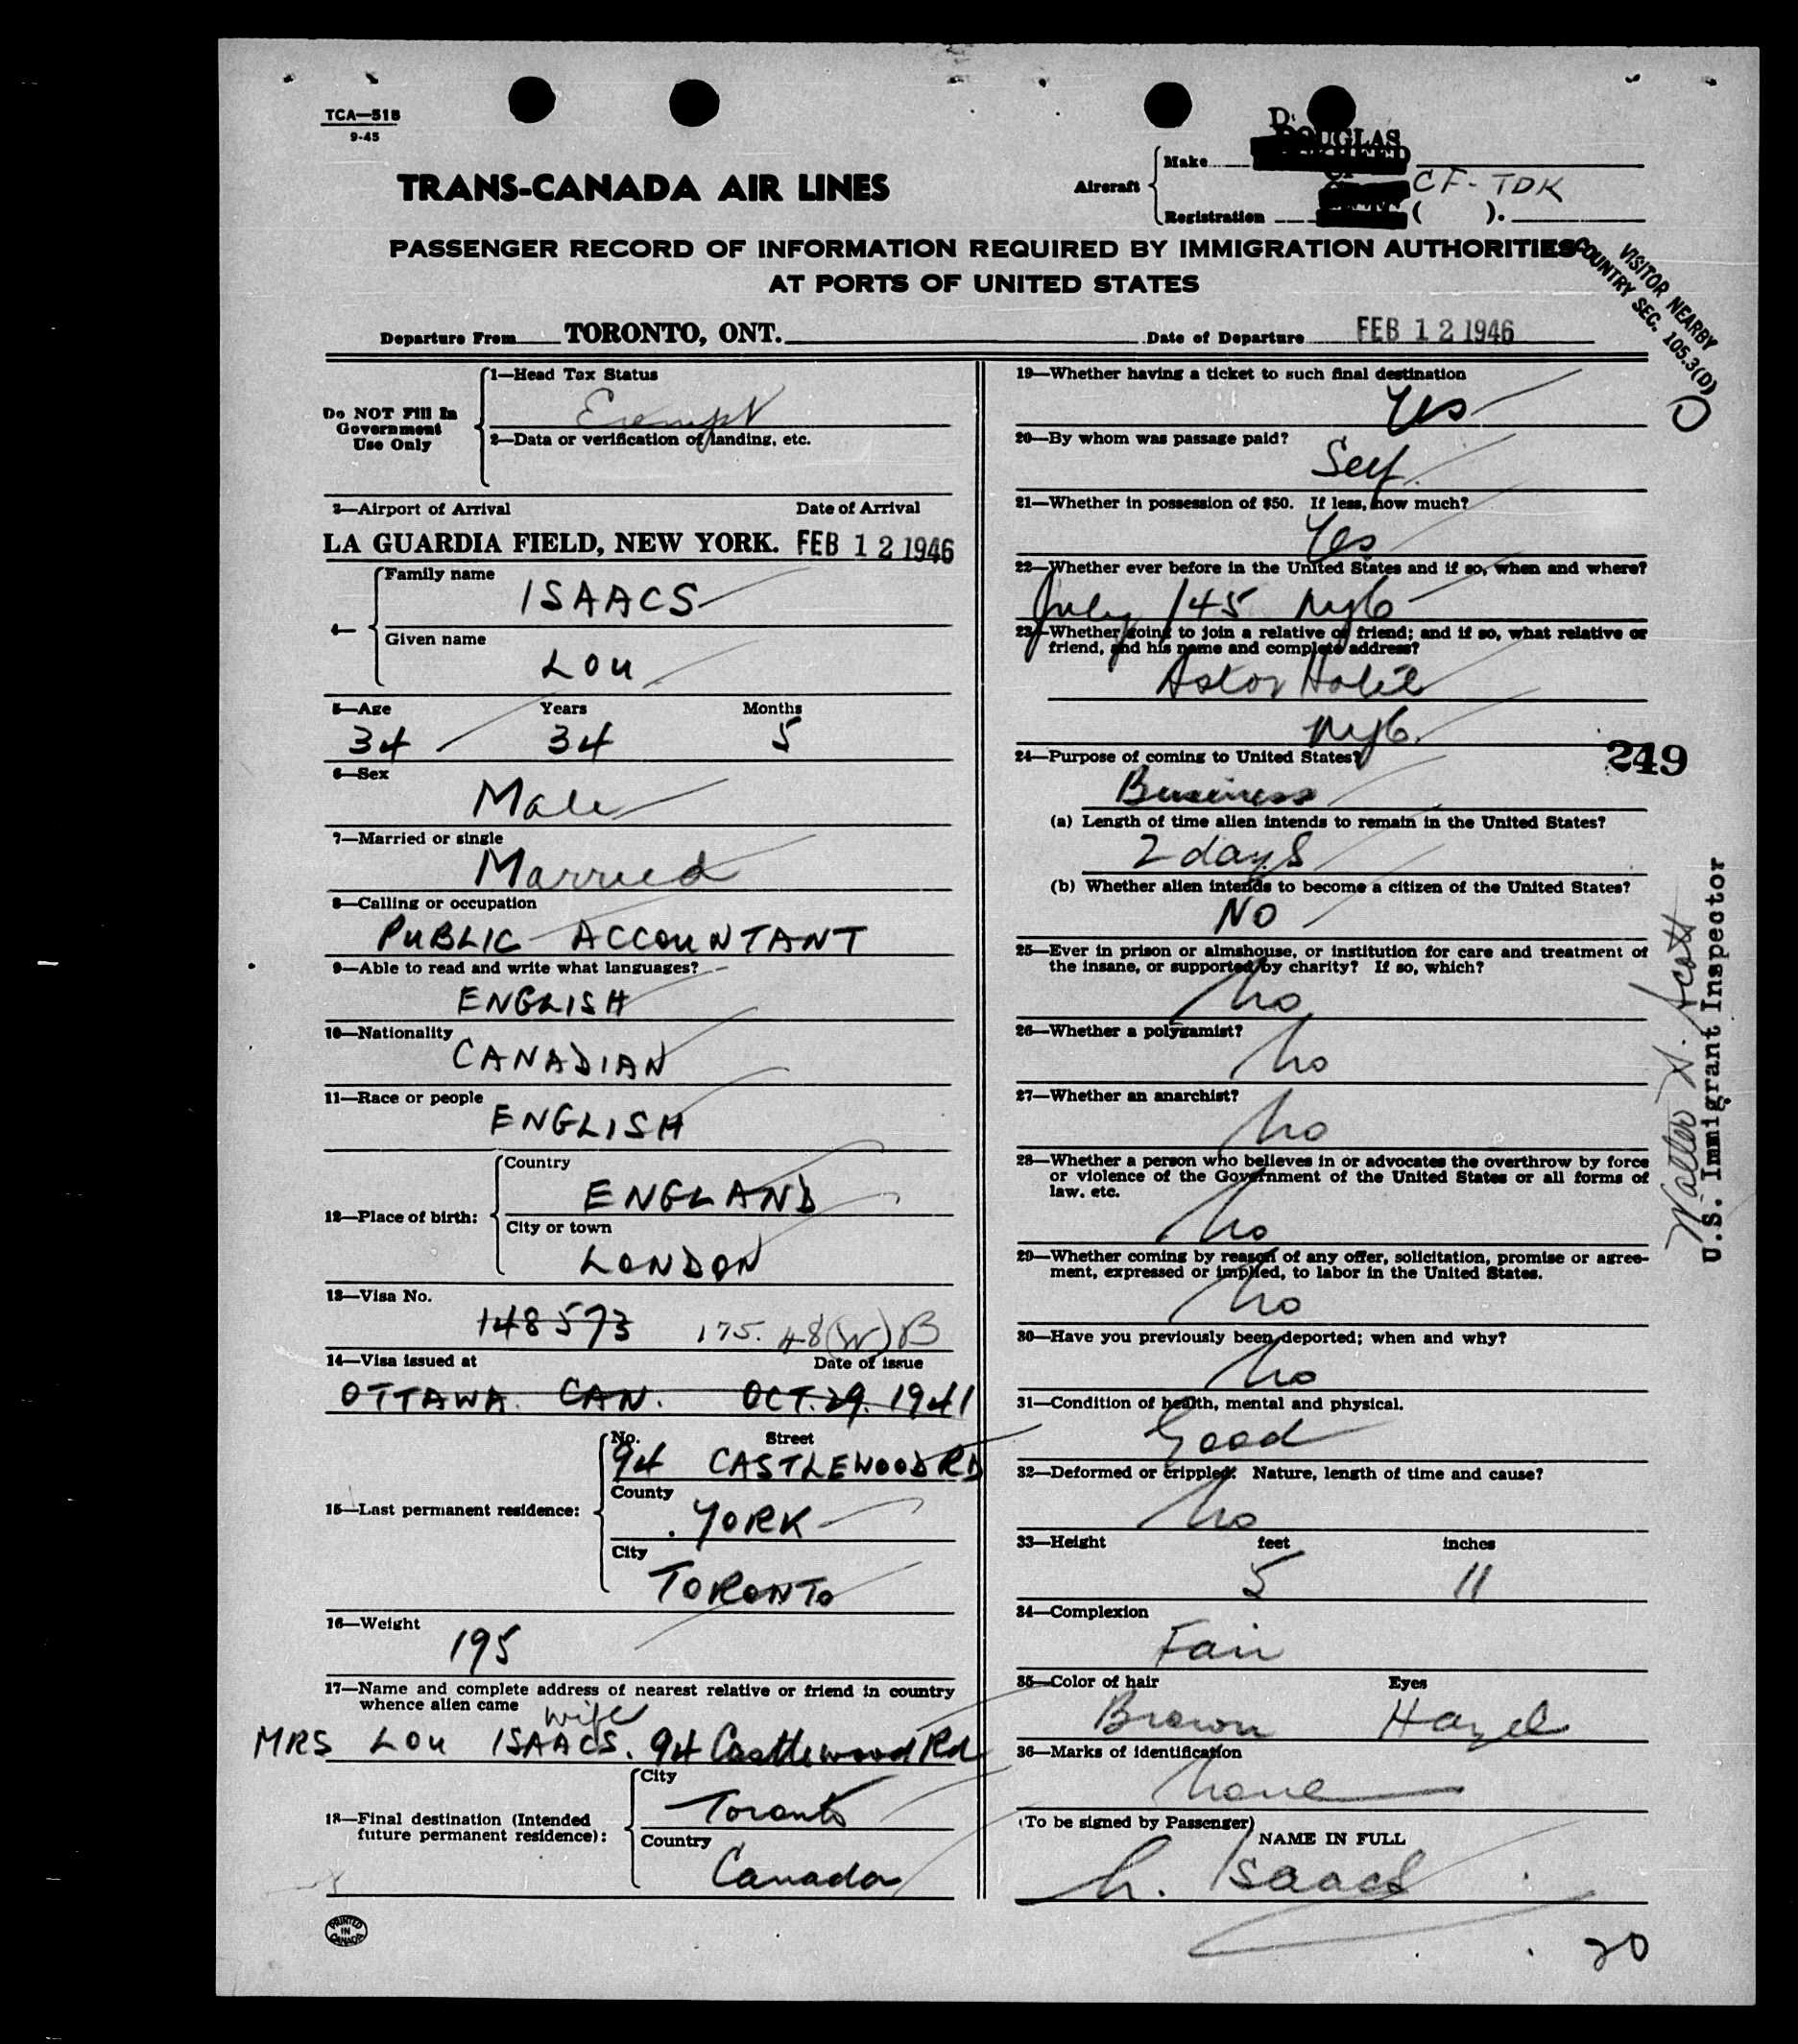 TCA—515
9-45
TRANS-CANADA AIR LINES
Aircraft
Make
DOUGLAS
Registration
CF-TDK
( ).
PASSENGER RECORD OF INFORMATION REQUIRED BY IMMIGRATION AUTHORITIES
AT PORTS OF UNITED STATES
VISITOR NEARBY
COUNTRY SEC. 105.3(D)
Departure From TORONTO, ONT.
Date of Departure FEB 12 1946
Do NOT Fill In
Government
Use Only
1—Head Tax Status
Exempt
2—Data or verification of landing, etc.
3—Airport of Arrival Date of Arrival
LA GUARDIA FIELD, NEW YORK. FEB 12 1946
4—
Family name
ISAACS
Given name
LOU
5—Age Years Months
34 34 5
6—Sex
Male
7—Married or single
Married
8—Calling or occupation
PUBLIC ACCOUNTANT
9—Able to read and write what languages?
ENGLISH
10—Nationality
CANADIAN
11—Race or people
ENGLISH
12—Place of birth:
Country
ENGLAND
City or town
LONDON
13—Visa No.
148573 175. 48(W)B
14—Visa issued at Date of issue
OTTAWA. CAN. OCT. 29. 1941
15—Last permanent residence:
No. Street
94 CASTLEWOOD RD
County
YORK
City
TORONTO
16—Weight
195
17—Name and complete address of nearest relative or friend in country
whence alien came
wife
MRS LOU ISAACS. 94 Castlewood Rd
18—Final destination (Intended
future permanent residence):
City
Toronto
Country
Canada
PRINTED
IN
CANADA
19—Whether having a ticket to such final destination
Yes
20—By whom was passage paid?
Self
21—Whether in possession of $50. If less, how much?
Yes
22—Whether ever before in the United States and if so, when and where?
July /45 NYC
23—Whether going to join a relative or friend; and if so, what relative or
friend, and his name and complete address?
Astor Hotel
NYC.
24—Purpose of coming to United States?
249
Business
(a) Length of time alien intends to remain in the United States?
2 days
(b) Whether alien intends to become a citizen of the United States?
NO
25—Ever in prison or almshouse, or institution for care and treatment of
the insane, or supported by charity? If so, which?
No
26—Whether a polygamist?
No
27—Whether an anarchist?
No
28—Whether a person who believes in or advocates the overthrow by force
or violence of the Government of the United States or all forms of
law, etc.
No
29—Whether coming by reason of any offer, solicitation, promise or agree-
ment, expressed or implied, to labor in the United States.
No
30—Have you previously been deported; when and why?
No
31—Condition of health, mental and physical.
Good
32—Deformed or crippled. Nature, length of time and cause?
No
33—Height feet inches
5 11
34—Complexion
Fair
35—Color of hair Eyes
Brown Hazel
36—Marks of identification
None
(To be signed by Passenger)
NAME IN FULL
L. Isaacs
20
Walter Scott
U.S. Immigrant Inspector